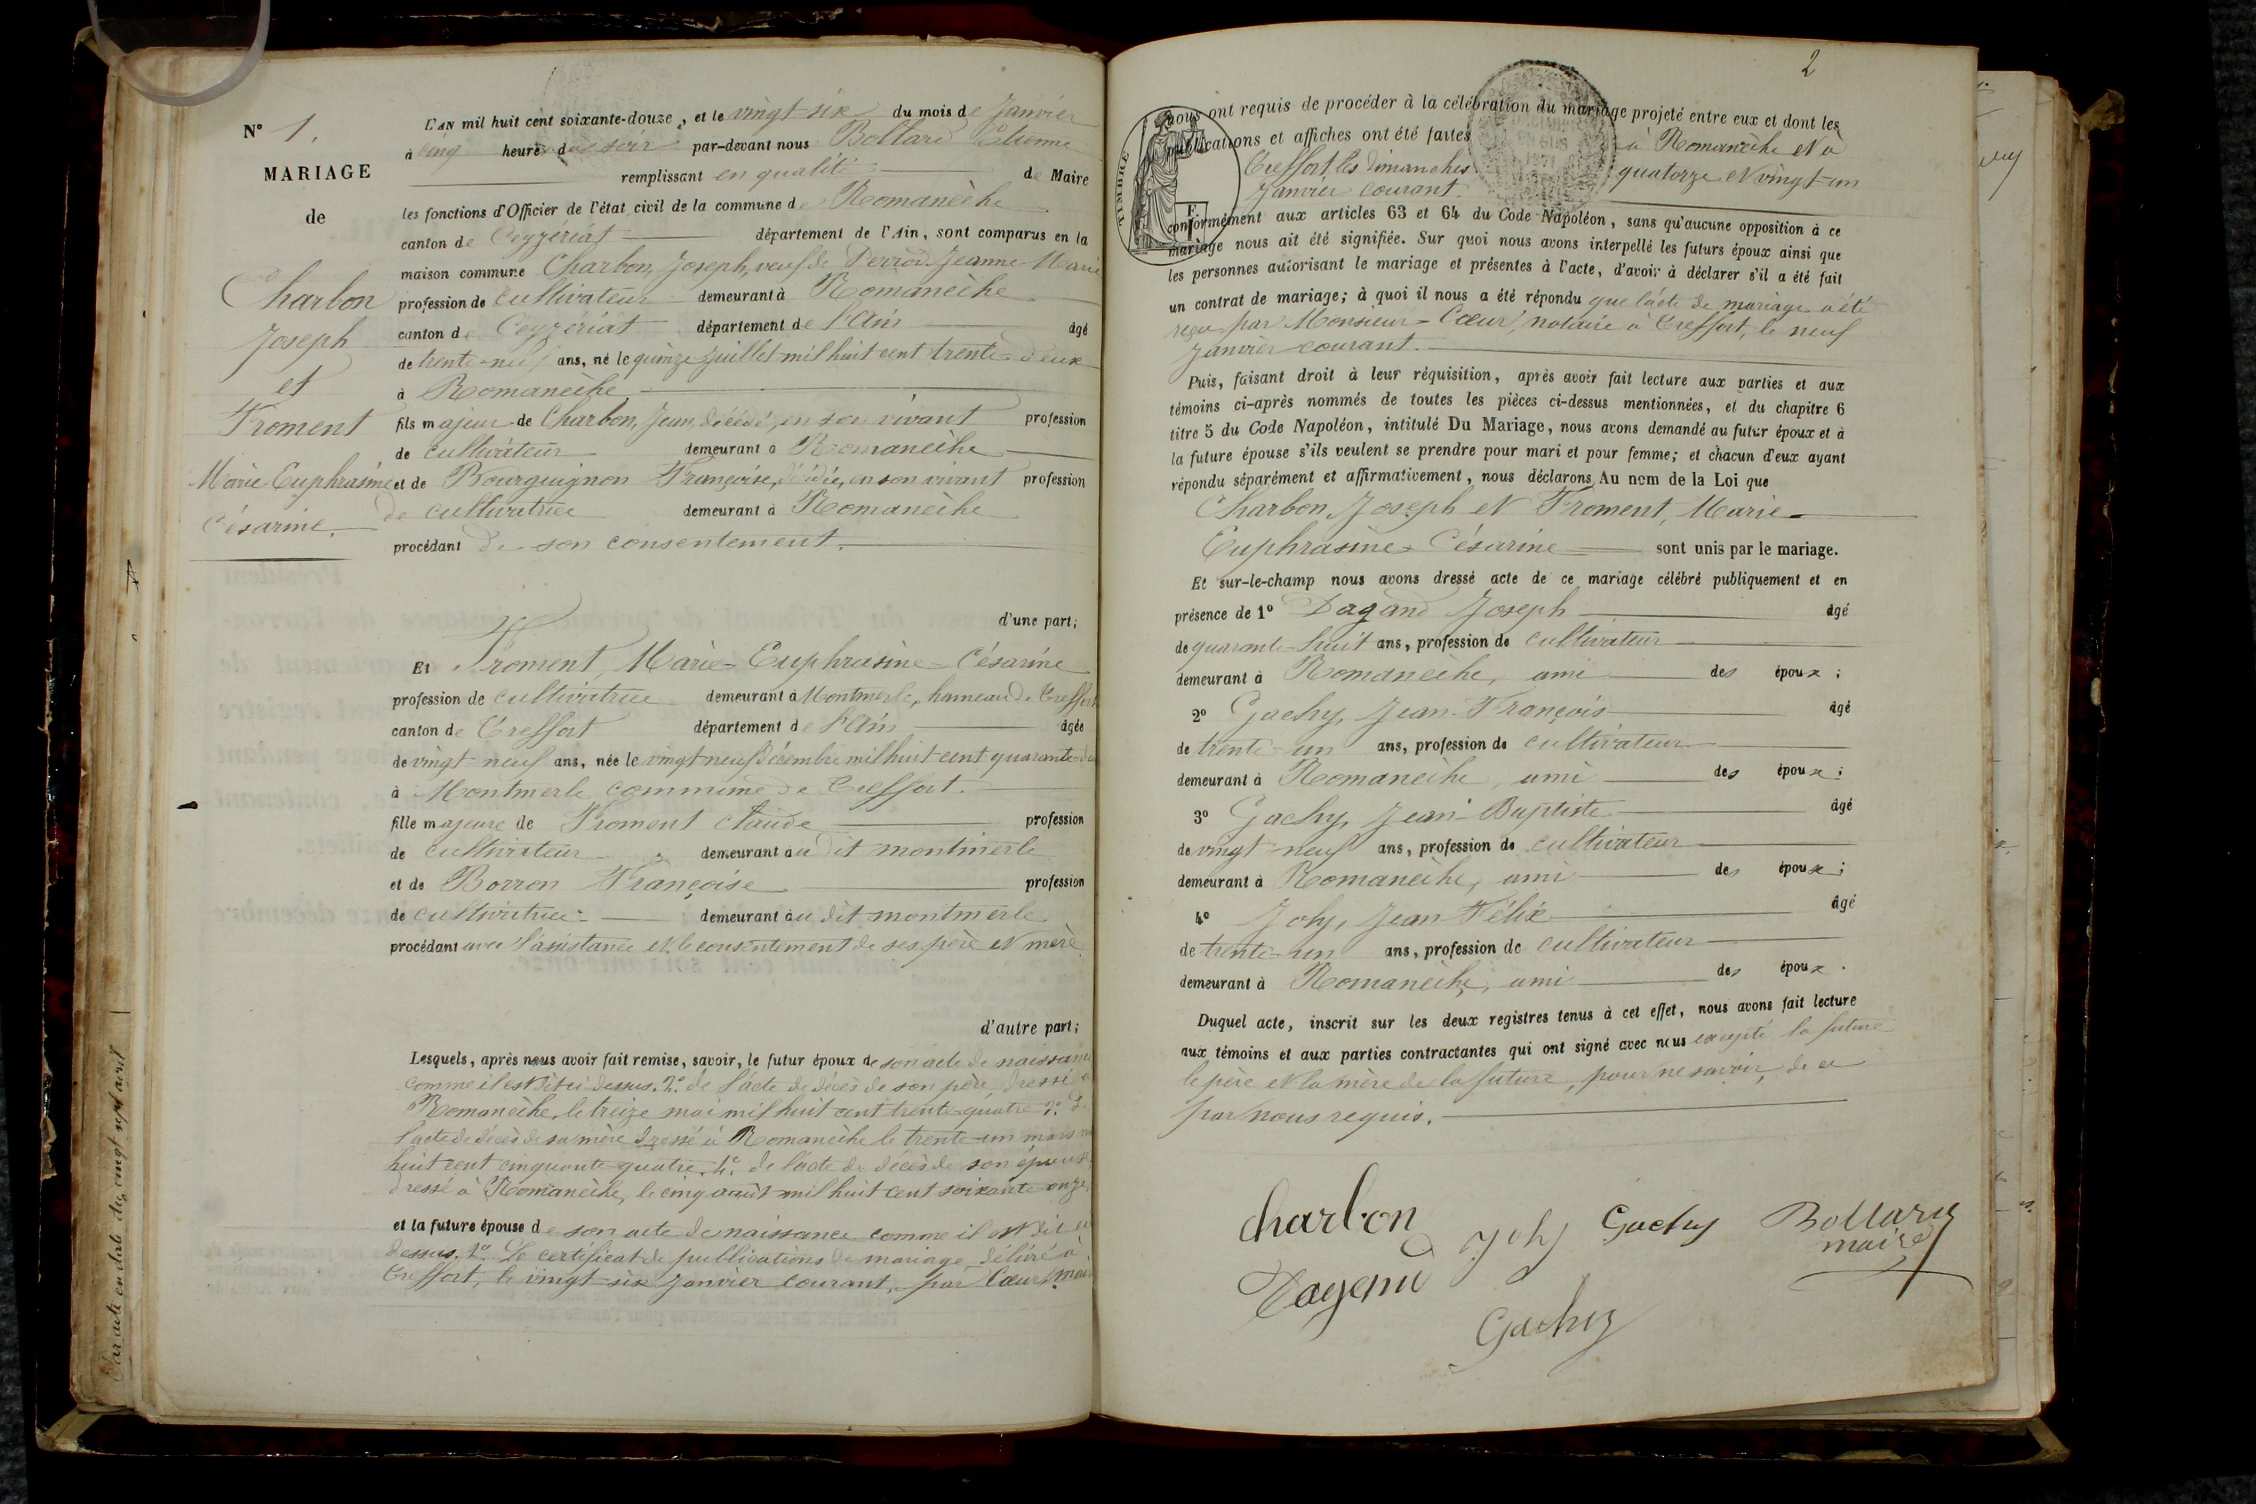 N° 1.
MARIAGE
de
Charbon
Joseph
et
Froment
Marie Euphrasine
Césarine.
L'AN mil huit cent soixante-douze, et le vingt-six du mois de Janvier
à cinq heures du soir par-devant nous Bollard Etienne
remplissant en qualité de Maire
les fonctions d'Officier de l'état civil de la commune de Romanèche
canton de Ceyzériat département de l'Ain, sont comparus en la
maison commune Charbon, Joseph, veuf de Perrod Jeanne-Marie
profession de cultivateur demeurant à Romanèche
canton de Ceyzériat département de l'Ain âgé
de trente-neuf ans, né le quinze juillet mil huit cent trente-deux
à Romanèche
fils majeur de Charbon, Jean, décédé, en son vivant profession
de cultivateur demeurant à Romanèche
et de Bourguignon Françoise, décédée, en son vivant profession
de cultivatrice demeurant à Romanèche
procédant de son consentement.
d'une part;
Et Froment, Marie-Euphrasine-Césarine
profession de cultivatrice demeurant à Montmerle, hameau de Treffort
canton de Treffort département de l'Ain âgée
de vingt-neuf ans, née le vingt neuf décembre mil huit cent quarante-deux
à Montmerle commune de Treffort.
fille majeure de Froment Claude profession
de cultivateur demeurant au dit montmerle
et de Borron Françoise profession
de cultivatrice demeurant au dit montmerle
procédant avec l'assistance et le consentement de ses père et mère
d'autre part;
Lesquels, après nous avoir fait remise, savoir, le futur époux de son acte de naissance
comme il est dit ci-dessus. 2° de l'acte de décès de son père dressé à
Romanèche, le treize mai mil huit cent trente-quatre 3° de
l'acte de décès de sa mère dressé à Romanèche le trente-un mars mil
huit cent cinquante-quatre. 4° de l'acte de décès de son épouse
dressé à Romanèche, le cinq août mil huit cent soixante onze
et la future épouse de son acte de naissance comme il est dit ci
dessus. 2° Le certificat de publications de mariage délivré à
Treffort, le vingt-six Janvier courant, par Cœur, maire
Par acte en date du vingt sept avril
2
TIMBRE
nous ont requis de procéder à la célébration du mariage projeté entre eux et dont les
publications et affiches ont été faites à Romanèche et à
Treffort, les dimanches quatorze et vingt-un
Janvier courant.
conformément aux articles 63 et 64 du Code Napoléon, sans qu'aucune opposition à ce
mariage nous ait été signifiée. Sur quoi nous avons interpellé les futurs époux ainsi que
les personnes autorisant le mariage et présentes à l'acte, d'avoir à déclarer s'il a été fait
un contrat de mariage; à quoi il nous a été répondu que l'acte de mariage a été
reçu par Monsieur Cœur, notaire à Treffort, le neuf
Janvier courant.
Puis, faisant droit à leur réquisition, après avoir fait lecture aux parties et aux
témoins ci-après nommés de toutes les pièces ci-dessus mentionnées, et du chapitre 6
titre 5 du Code Napoléon, intitulé Du Mariage, nous avons demandé au futur époux et à
la future épouse s'ils veulent se prendre pour mari et pour femme; et chacun d'eux ayant
répondu séparément et affirmativement, nous déclarons Au nom de la Loi que
Charbon, Joseph et Froment, Marie-
Euphrasine-Césarine sont unis par le mariage.
Et sur-le-champ nous avons dressé acte de ce mariage célébré publiquement et en
présence de 1° Dagand Joseph âgé
de quarante-huit ans, profession de cultivateur
demeurant à Romanèche, ami des époux;
2° Gachy, Jean-François âgé
de trente-un ans, profession de cultivateur
demeurant à Romanèche, ami des époux;
3° Gachy, Jean-Baptiste âgé
de vingt-neuf ans, profession de cultivateur
demeurant à Romanèche, ami des époux;
4° Joly, Jean Félix âgé
de trente-un ans, profession de cultivateur
demeurant à Romanèche, ami des époux.
Duquel acte, inscrit sur les deux registres tenus à cet effet, nous avons fait lecture
aux témoins et aux parties contractantes qui ont signé avec nous excepté la future
le père et la mère de la future, pour ne savoir, de ce
par nous requis.
charbon
Joly
Gachy
Bollard
maire
Dagand
Gachy